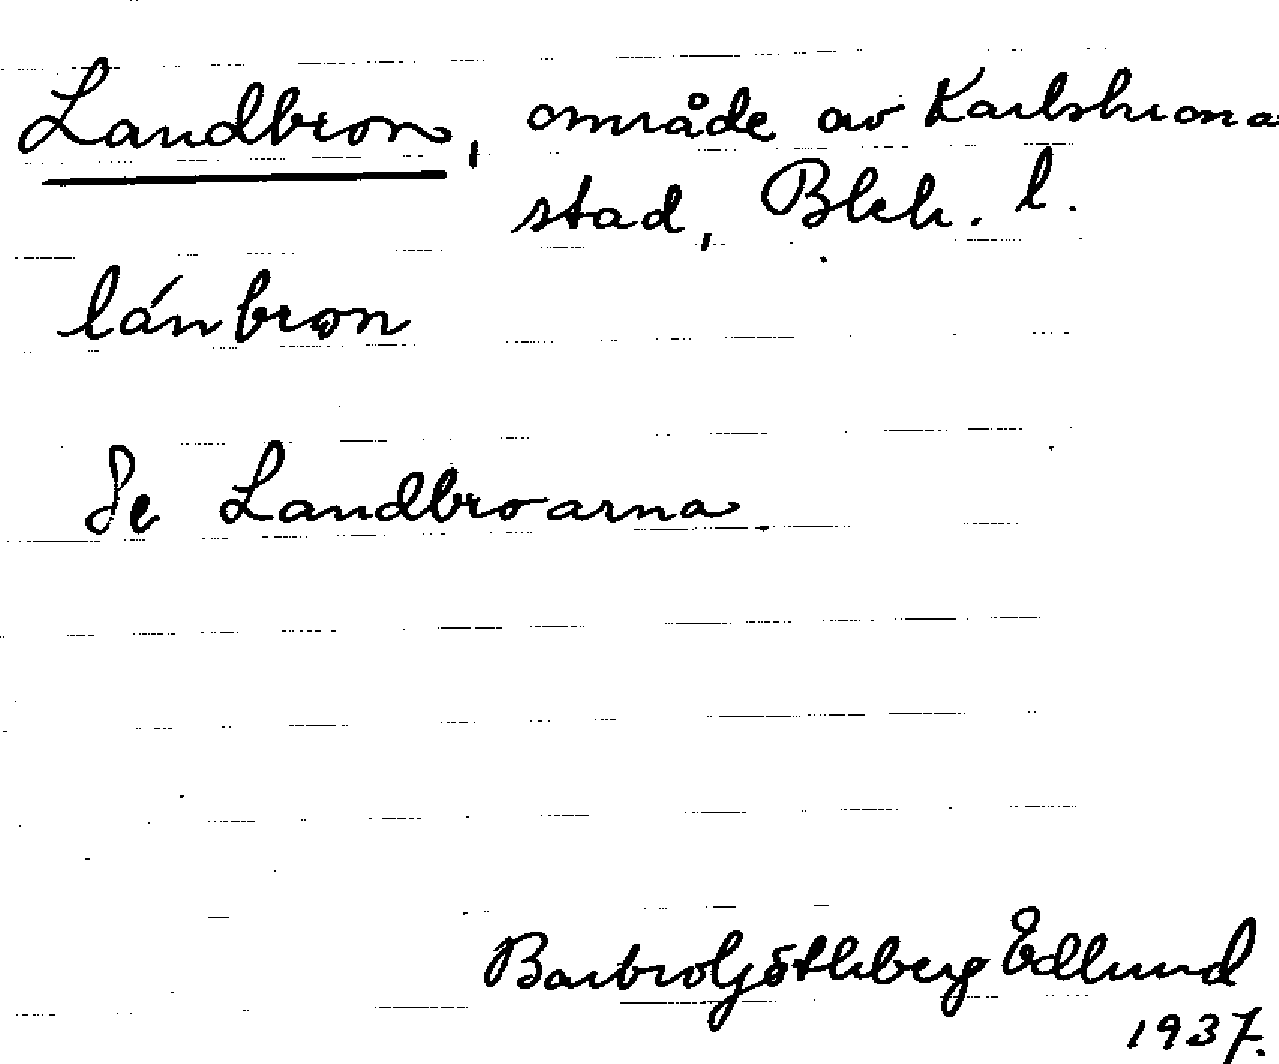 Landbron, område av Karlskrona
stad, Blek. l.
lánbrøn
Se Landbroarna.
Barbro Götheberg Edlund
1937.